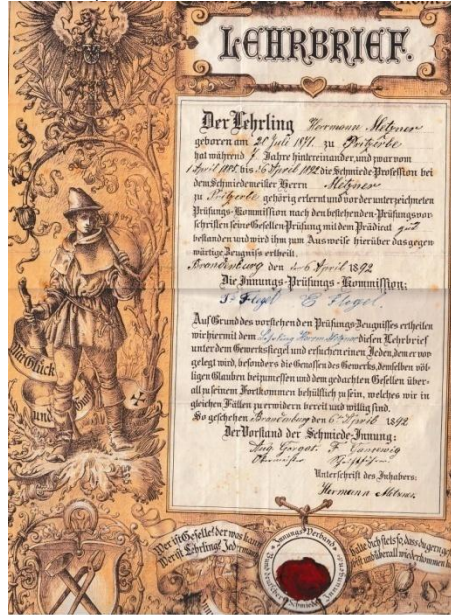 LEHRBRIEF.
Der Lehrling Herrmann Metzner
geboren am 28 Juli 1871. zu Pritzerbe
hat während 7 Jahre hintereinander, und zwar vom
1 April 1885. bis 6 April 1892 die Schmiede-Profession bei
dem Schmiedemeister Herrn Metzner
zu Pritzerbe gehörig erlernt und vor der unterzeichneten
Prüfungs-Kommission nach den bestehenden Prüfungsvor-
schriften seine Gesellen-Prüfung mit dem Prädicat gut
bestanden und wird ihm zum Ausweise hierüber das gegen
wärtige Zeugniß ertheilt.
Brandenburg den 6 April 1892
Die Innungs-Prüfungs-Kommission:
Flegel Flegel.
Auf Grund des vorstehenden Prüfungs-Zeugnisses ertheilen
wir hiermit dem Lehrling Herm. Metzner diesen Lehrbrief
unter dem Gewerkssiegel und ersuchen einen Jeden, dem er vor
gelegt wird, besonders die Genossen des Gewerks, demselben völ-
ligen Glauben beizumessen und dem gedachten Gesellen über-
all zu seinem Fortkommen behülflich zu sein, welches wir in
gleichen Fällen zu erwidern bereit und willig sind.
So geschehen Brandenburg den 6 April 1892
Der Vorstand der Schmiede-Innung:
Aug.
Obermeister
Unterschrift des Inhabers:
Hermann Metzner.
Glück
und
Wer ist Geselle? der was kann
Wer ist Lehrling? Jedermann
Innungs-Verband
Bund deutscher Schmiede-Innungen
Halte dich stets so, dass du gern ge
und überall wiederkommen